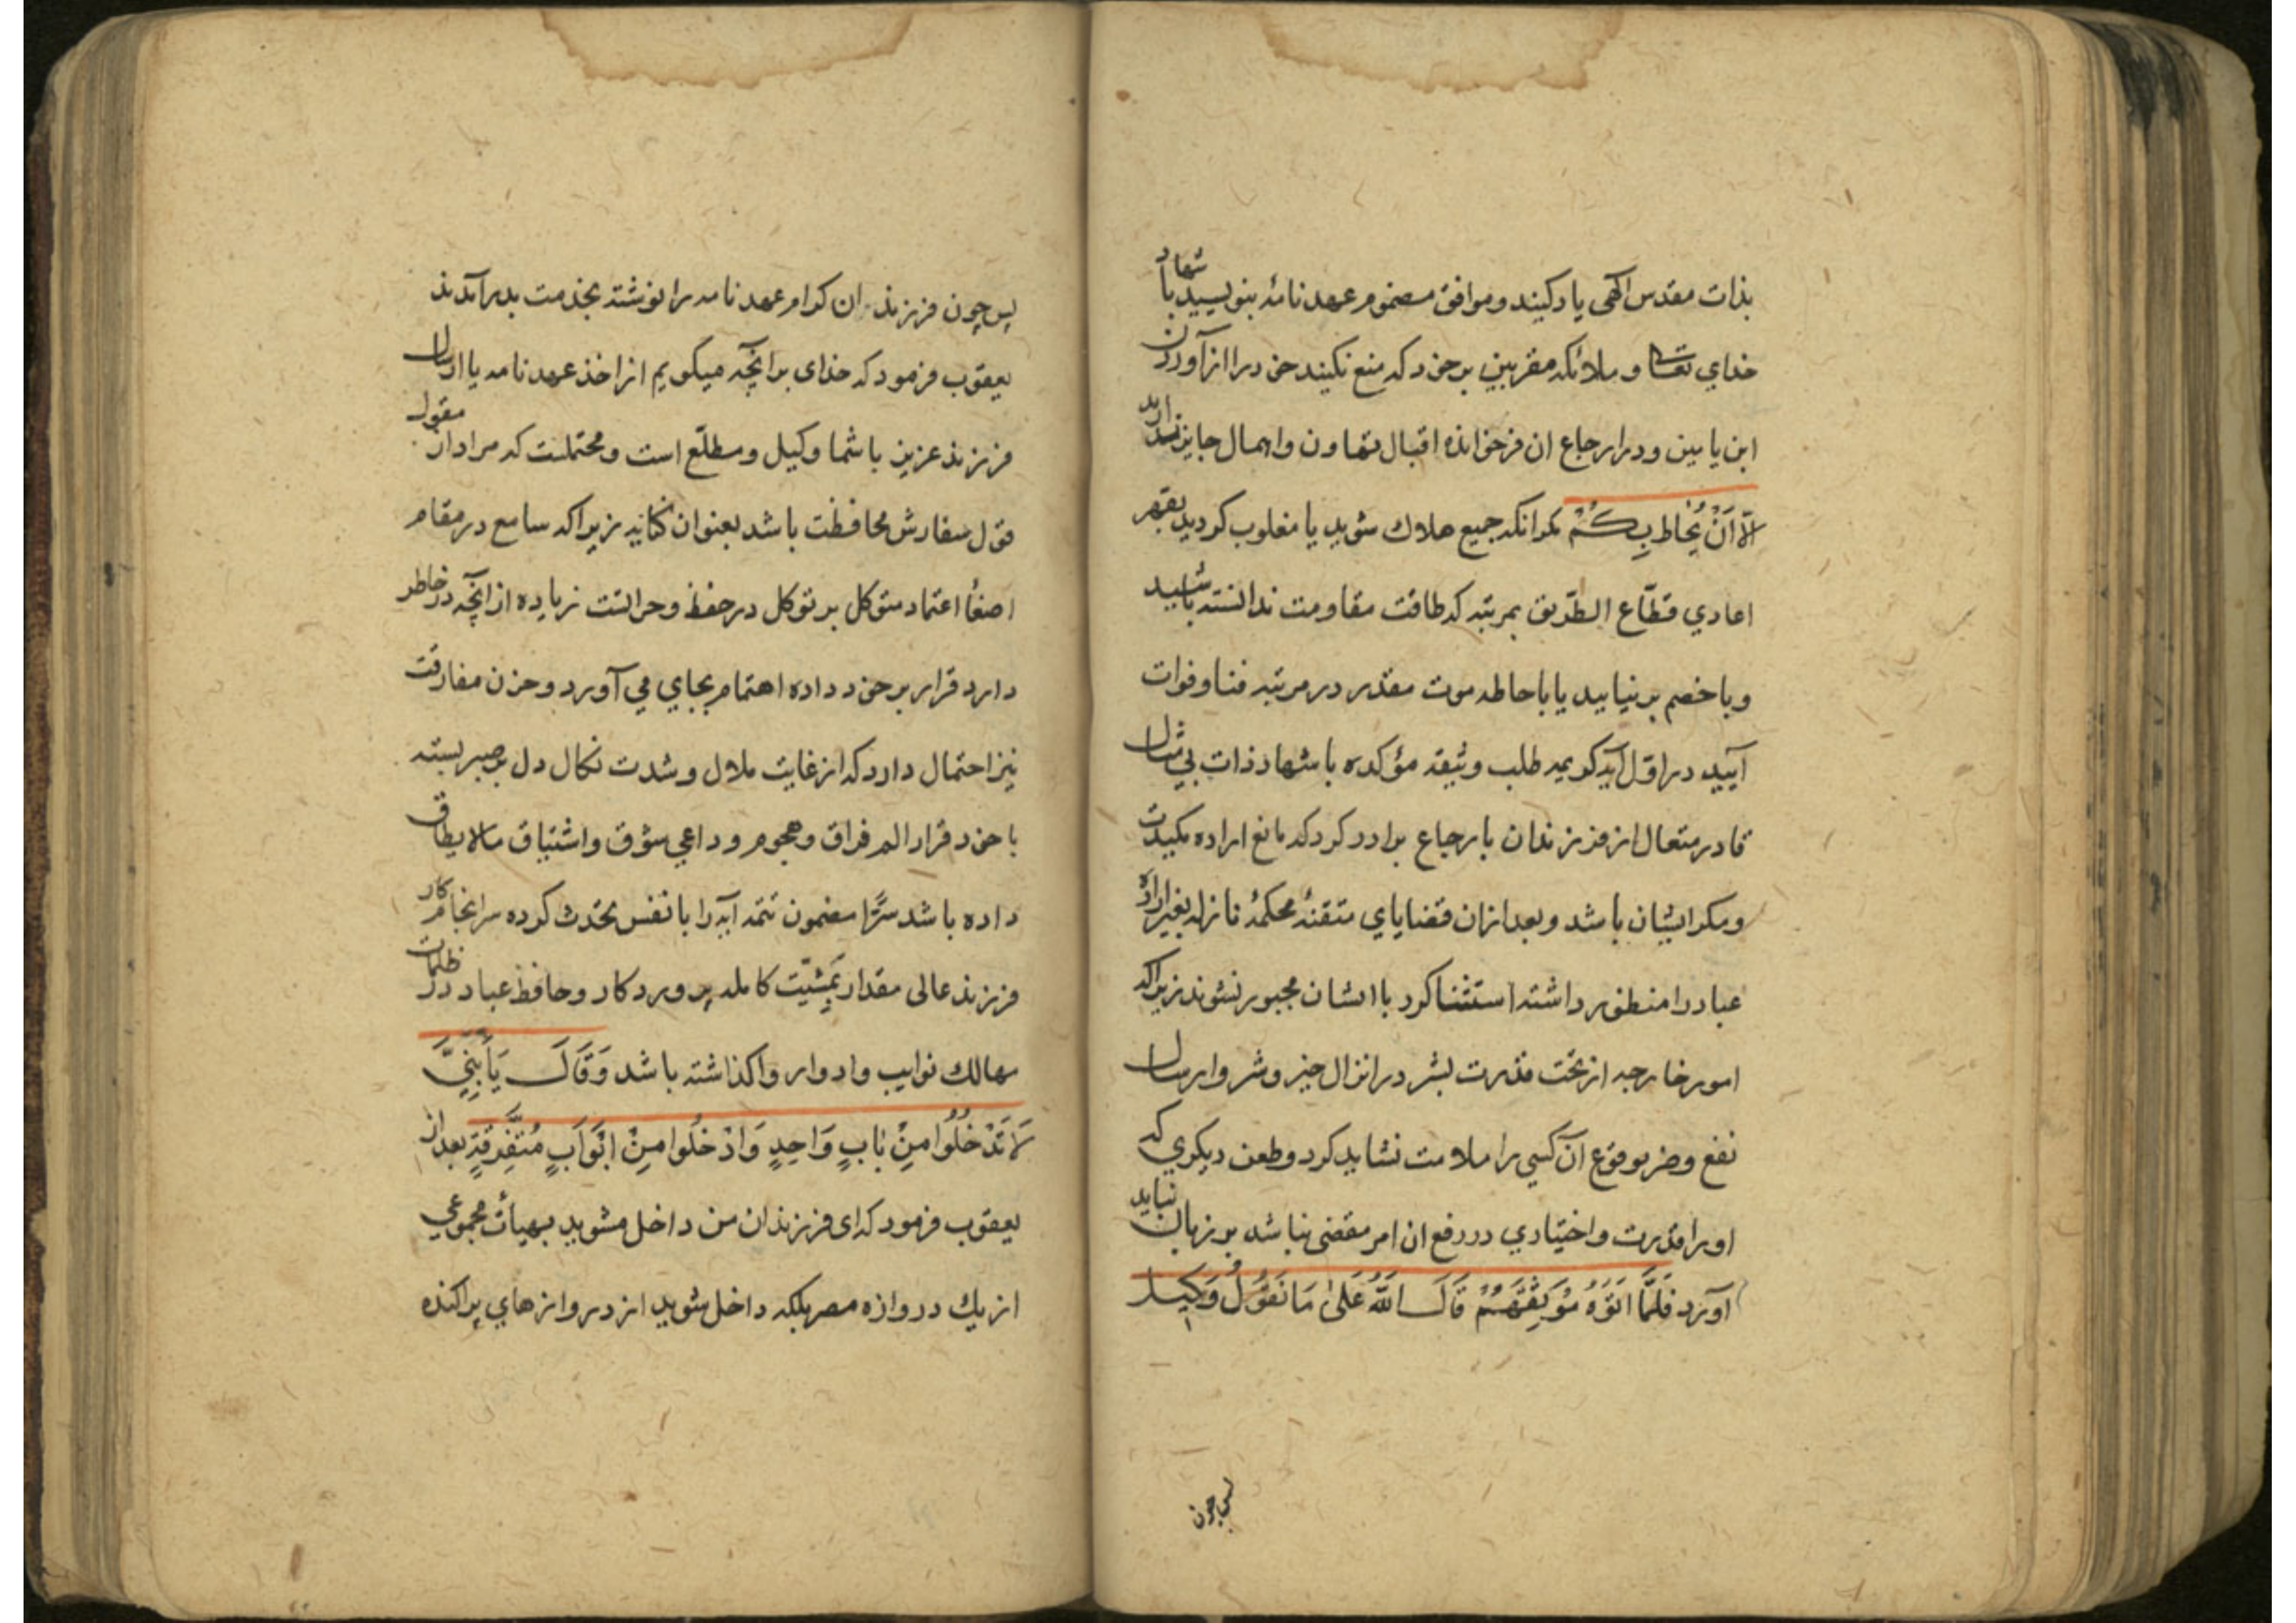 بذات مقدس الهی یاد کنید و موافق مضموم عهد نامهٔ بنویسید با شهاد
خدای تعالی و ملائکه مقربین بر خود که منع نکنید خود را از آوردن
ابن یامین و در ارجاع ان فرخوانده اقبال تهاون و اهمال جایز ندارید
الّا اَنْ یُحٰاطَ بِکُمْ مکر انکه جمیع هلاك شوید یا مغلوب کردید بقهر
اعادي قطّاع الطّریق بمرتبه که طاقت مقاومت ندانسته باشید
و با خصم بر نیایید یا باحاطه موت مقدر در مرتبه فنا و فوات
آیید در اوّل آیه کریمه طلب وثیقه مؤکده با شهاد ذات بی مثال
قادر متعال از فرزندان بارجاع برادر کرد که مانع اراده مکیدت
و مکر ایشان باشد و بعد ازان قضایاي متقنهٔ محکمهٔ نازله بغیر اراده
عباد را منظور داشته استثنا کرد با ایشان مجبور نشوند زیرا که
امور خارجه از تحت قدرت بشر در انزال خیر و شر و ارسال
نفع و ضر بوقوع آن کسی را ملامت نشاید کرد و طعن دیکري که
او را قدرت و اختیاري در رفع ان امر مقضی نباشد بر زبان نباید
آورد فَلَمَّا اٰتَوْهُ مَوْثِقَهُمْ قَالَ اللّٰهُ عَلىٰ مَا نَقُولُ وَکِیل
پس چون
پس چون فرزندان کرام عهد نامه را نوشته بخدمت پدر آمدند
یعقوب فرمود که خدای برانچه میکویم از اخذ عهد نامه یا ارسال
فرزند عزیز با شما وکیل و مطلّع است و محتملست که مراد از مقول
قول سفارش محافظت باشد بعنوان کنایه زیرا که سامع در مقام
اصغا اعتماد متوکل بر توکل در حفظ و حراست زیاده از انچه در خاطر
دارد قرار بر خود داده اهتمام بجاي می آورد و حزن مفارقت
نیز احتمال دارد که از غایت ملال و شدت نکال دل بر صبر بسته
با خود قرار الم فراق و هجوم و داعي شوق و اشتیاق مالا یطاق
داده باشد سرًّا مضمون تتمه آیه را با نفس تحدث کرده سرانجام کار
فرزند عالی مقدار بمشیّت کامله پروردکار و حافظ عباد در ظلمات
مهالك نوایب و ادوار واکذاشته باشد وَقَالَ یَا بَنِیَّ
لَا تَدْخُلُوا مِنْ بٰابٍ وَاحِدٍ وَادْخُلُوا مِنْ اَبْوَابٍ مُتَفَرِّقَةٍ بعد از
یعقوب فرمود که ای فرزندان من داخل مشوید بهیأت مجموعي
از یك دروازه مصر بلکه داخل شوید از دروازهاي پراکنده